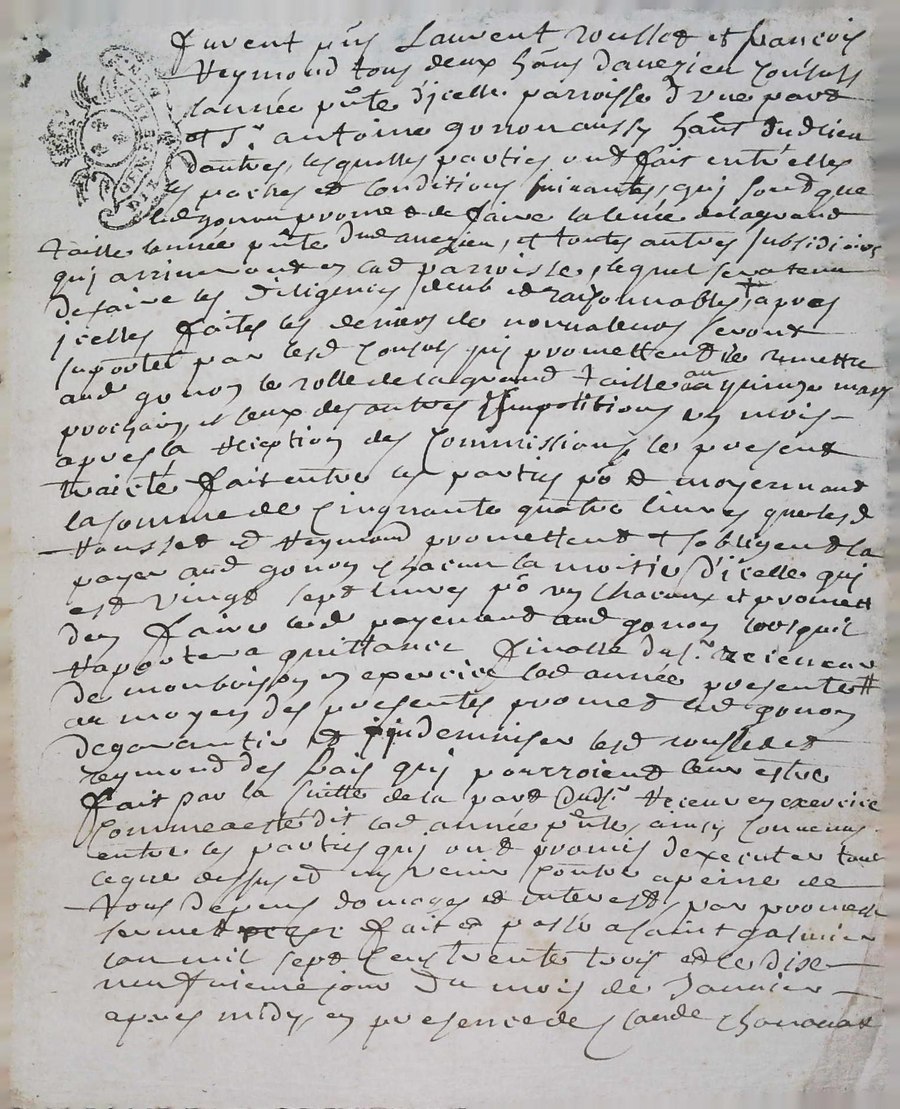 furent pñs Laurent rousset et francois
Reymond tous deux hãns daveizieu Consuls
lannée pñte dicelle parroisse dune part
et Sr. antoine gonon aussy hãnt dud lieu
dautre, lesquelles parties ont fait entre elles
les paches et Conditions suivantes, qui sont que
led gonon promet de faire la levée de la grand
taille lannée pñte dud aveizieu, et toutes autres subsidiaires
qui arriveront en lad parroisse, lequel sera tenu
de faire les diligences deub et raisonnables, apres
jcelles faites les deniers de nonvaleurs seront
suportés par lesd Consuls qui promettent de remettre
aud gonon le rolle de la grand taille au quinze mars
prochain, et ceux des autres Impositions un mois
apres la reception des Commissions, le present
traicté fait entre les parties po et moyennant
la somme de Cinquante quatre livres que lesd
Rousset et Reymond promettent et sobligent de la
payer aud gonon chacun la moitie dicelle qui
est vingt sept livres po un Chacun et promett
den faire led payement aud gonon lorsquil
raportera quittance finalle du Sr. receveur
de monbrison en exercice lad année presente
au moyen des presentes promet led gonon
de garantir et indemniser lesd rousset et
reymond des frais qui pourroient leur estre
fait par la suitte de la part dudSr. Receveur en exercice
Comme a esté dit lad année pñte, ainsy Convenus
entre les parties qui ont promis dexecuter tout
ceque dessus et ny venir Contre a peine de
tous depens domages et interests, par promesse
serment fait et passé a saint galmier
lan mil sept Cens trente trois et le dixe
neufvieme jour du mois de Janvier
apres midy, en presence de Claude
GENER